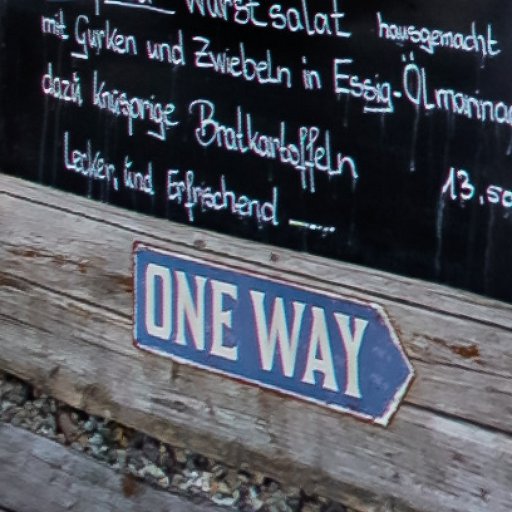 Wurstsalat hausgemacht
mit Gurken und Zwiebeln in Essig-Ölmarinad
dazu knusprige Bratkartoffeln
13,50
Lecker, und Erfrischend
ONE WAY